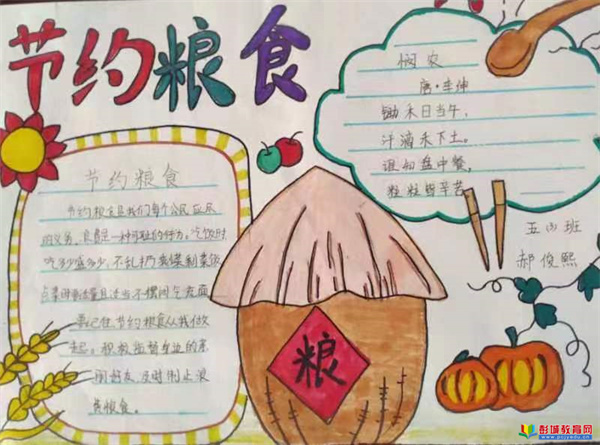 节约粮食
悯农
唐·李绅
锄禾日当午,
汗滴禾下土。
谁知盘中餐,
粒粒皆辛苦
五(4)班
郝俊熙
节约粮食
节约粮食是我们每个公民应尽
的义务,浪费是一种可耻的行为。吃饭时
吃多少盛多少,不乱扔剩菜剩饭
点菜时要适量
节约粮食从我做
起。积极监督身边的亲
朋好友及时制止浪
费粮食。
粮
彭城教育网